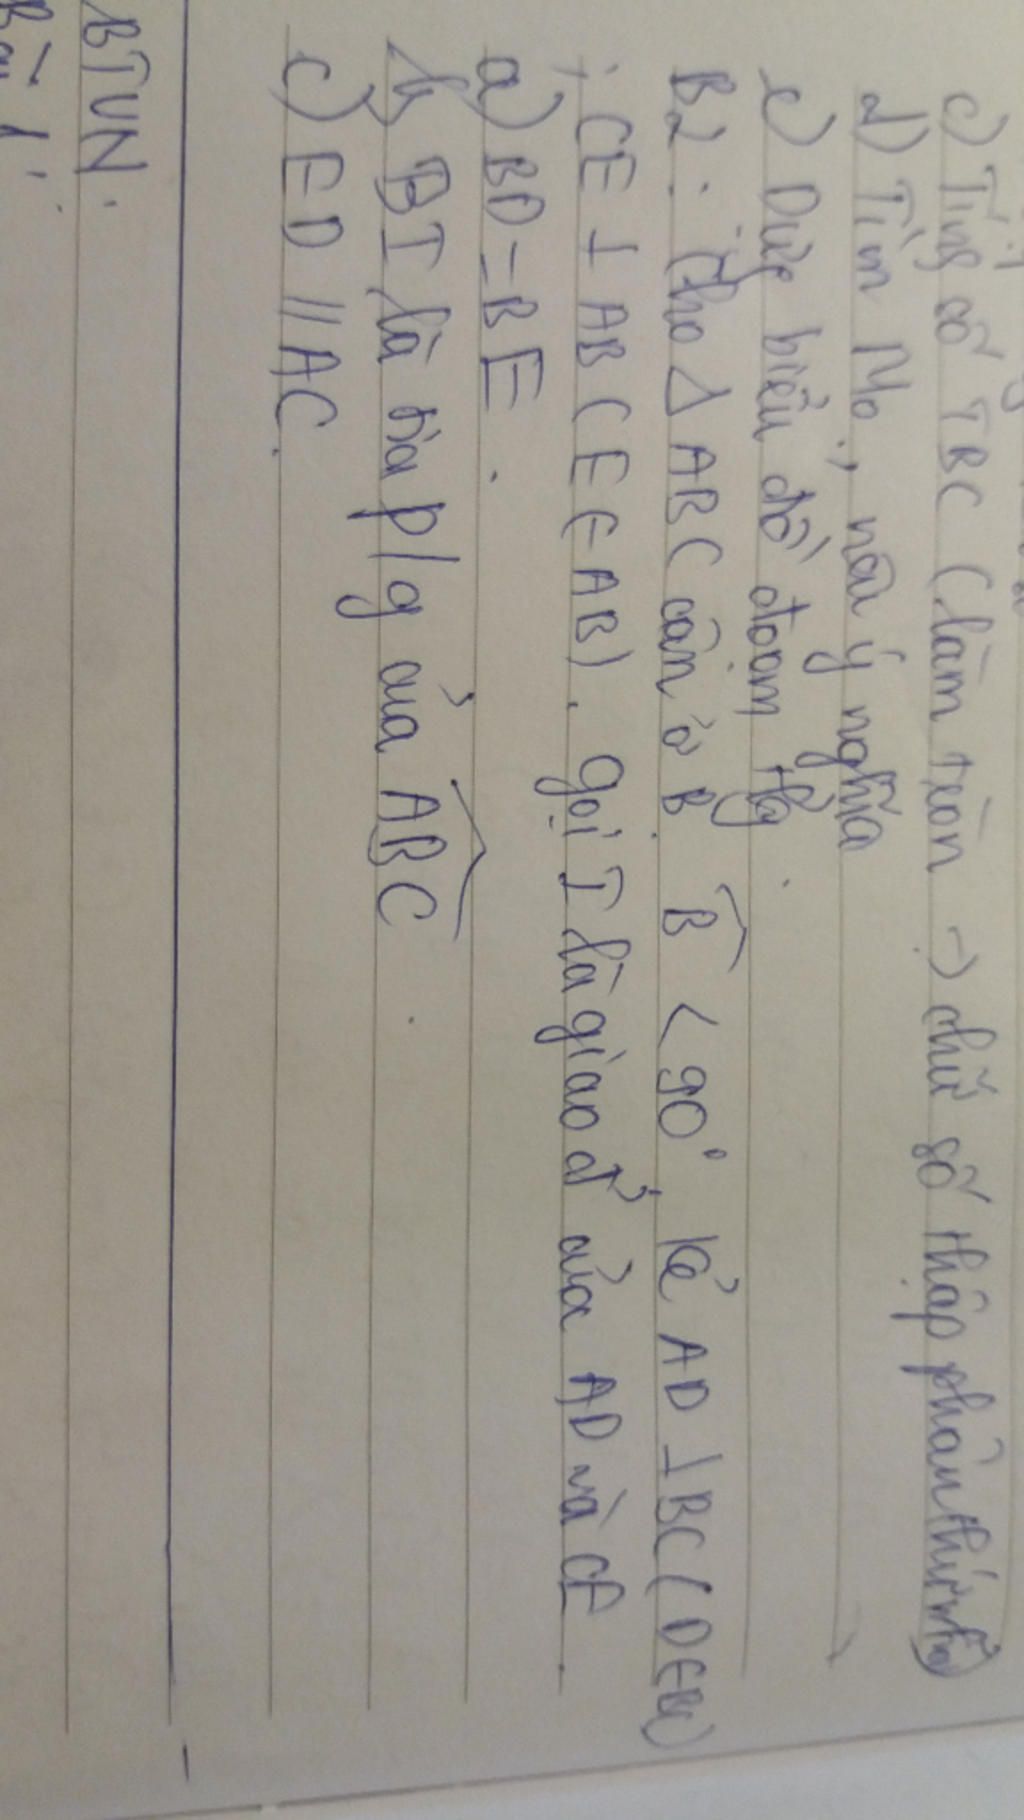 c) Tính số TBC (làm tròn → chữ số thập phân thứ nhất)
d) Tìm Mo, nêu ý nghĩa
e) Dựng biểu đồ đoạn thẳng
B2: Cho Δ ABC cân ở B. B̂ < 90°. Kẻ AD ⊥ BC (D∈BC)
; CE ⊥ AB (E ∈ AB). Gọi I là giao đ' của AD và CE.
a) BD = BE.
b) BI là tia p/g của ABC
c) ED // AC.
BTVN:
Bài 1: